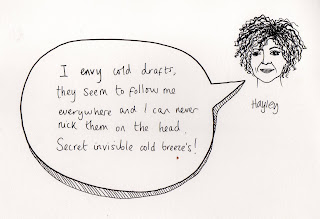 I envy cold drafts,
they seem to follow me
everywhere and I can never
nick them on the head.
Secret invisible cold breeze's!
Hayley